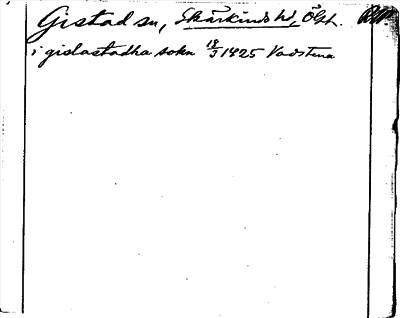 Gistad sn, Skärkinds hd, Ögh.
i gislastadha sokn 18/3 1425 Vadstena